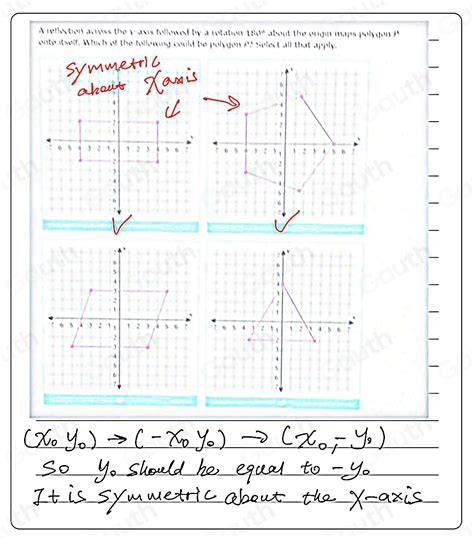 A reflection across the y-axis followed by a rotation 180° about the origin maps polygon P
onto itself. Which of the following could be polygon P? Select all that apply.
symmetric
about x axis
(x₀ y₀) → (-x₀ y₀) → (x₀, -y₀)
So y₀ should be equal to -y₀
It is symmetric about the x-axis